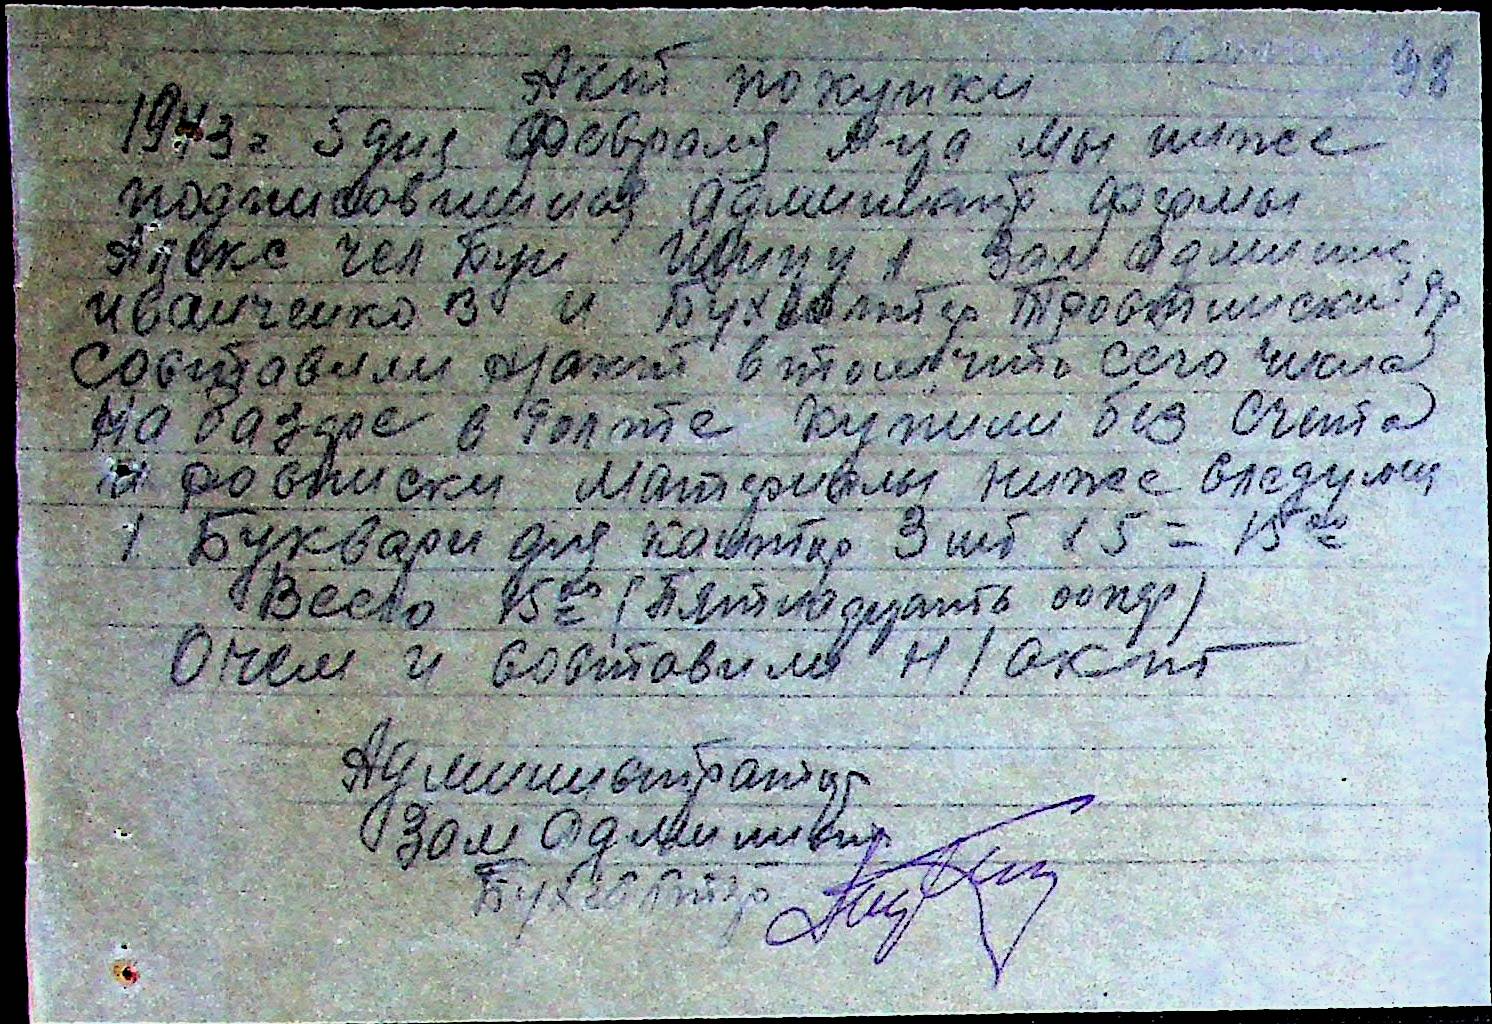 98
Акт покупки
1943 г 5 дня Февраля м-ца Мы ниже
подписовшиися Админист. фермы
Зам Админис
иванченко В и Бухгалтер
Составили н/акт втом что сего числа
На базаре в купили без счета
и росписки Материалы ниже следующ
1 Буквари для контор 3 шт х 5 = 15 00
Всего 15 00 (Пятнадцать
О чем и составили н/акт
Администратор
Зам Администр
Бухгалтер